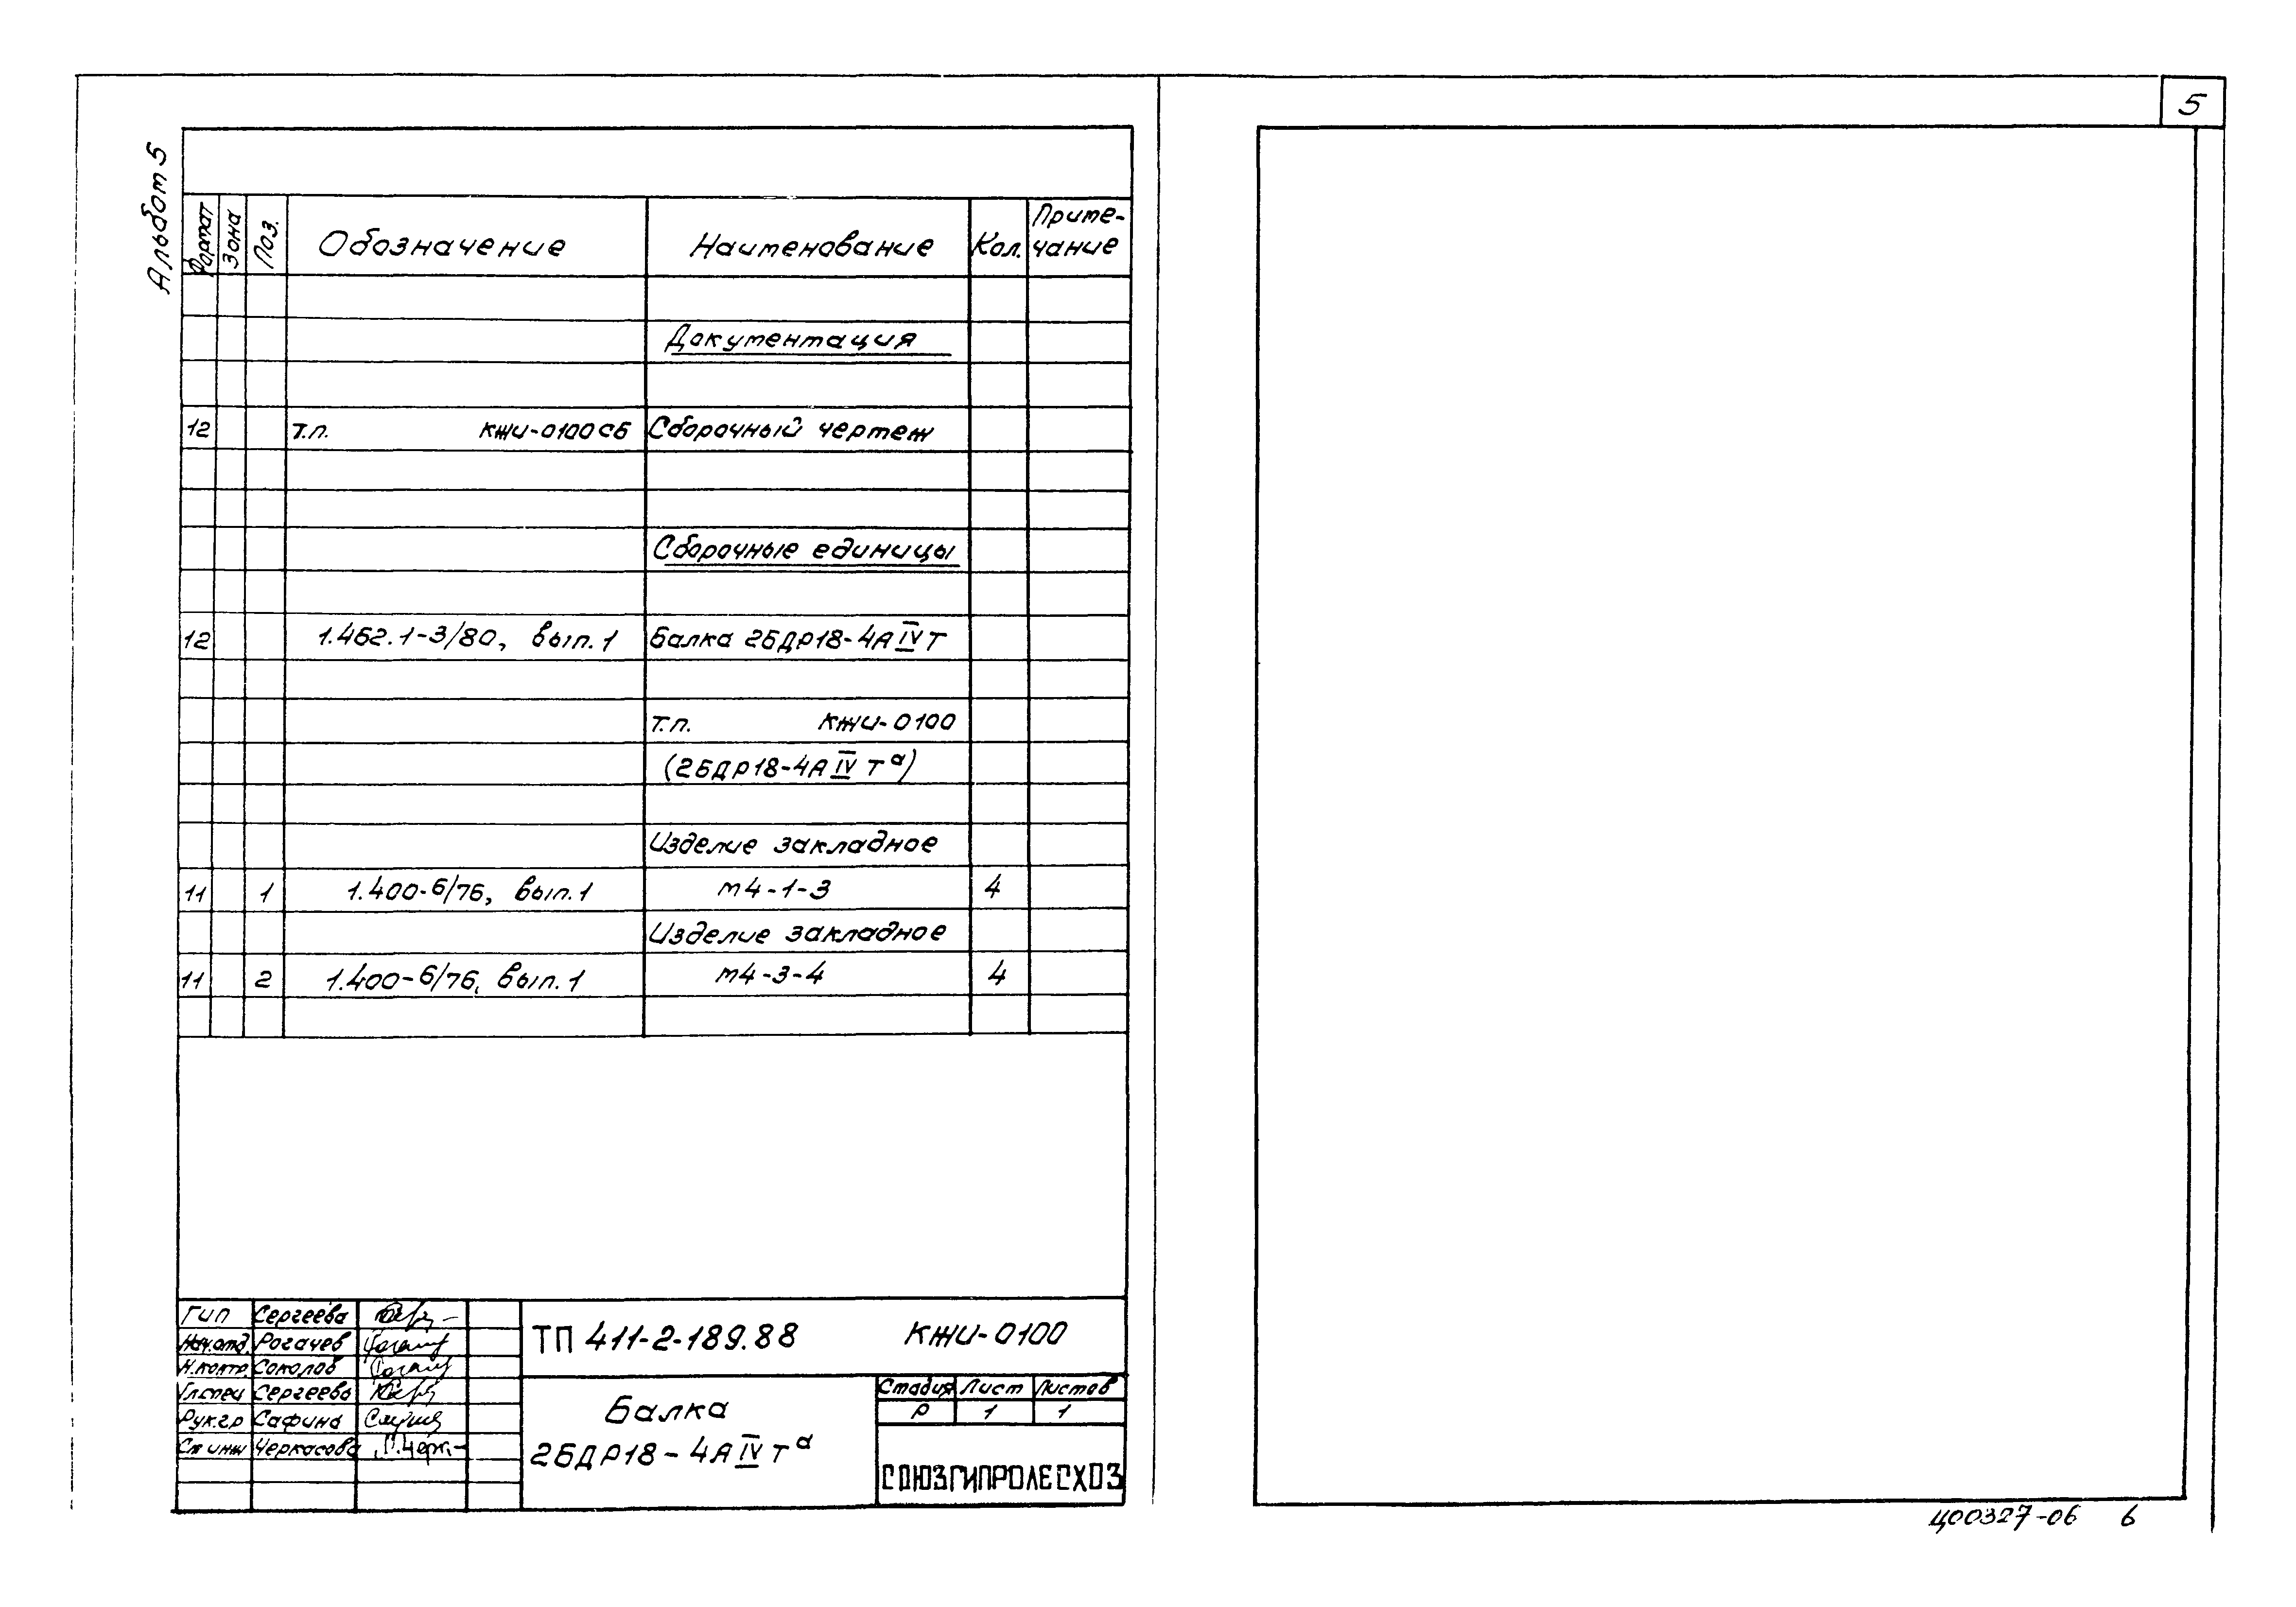 5
Альбом 5
Формат Зона Поз. Обозначение Наименование Кол. Приме-
чание
Документация
12 т.п. КЖИ-0100СБ Сборочный чертеж
Сборочные единицы
12 1.462.1-3/80, вып.1 Балка 2БДР18-4АIVТ
т.п. КЖИ-0100
(2БДР18-4АIVТᵃ)
Изделие закладное
11 1 1.400-6/76, вып.1 м4-1-3 4
Изделие закладное
11 2 1.400-6/76, вып.1 м4-3-4 4
ГИП Сергеева
Нач.отд. Рогачев
Н.контр. Соколов
Гл.спец Сергеева
Рук.гр Сафина
Ст инж Черкасова
ТП 411-2-189.88 КЖИ-0100
Балка
2БДР18-4АIVТᵃ
Стадия Лист Листов
Р 1 1
СОЮЗГИПРОЛЕСХОЗ
Ц00327-06 6